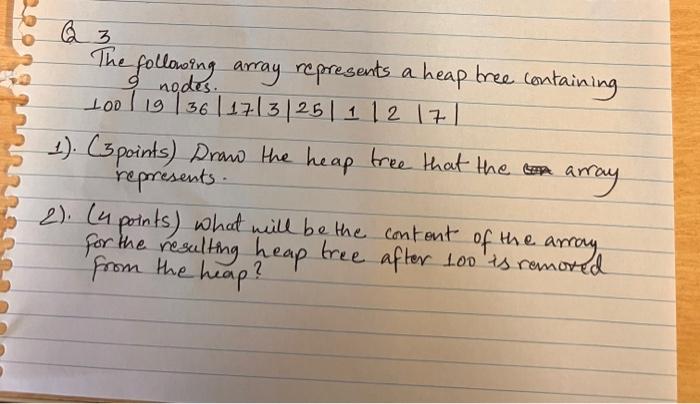 Q 3
The following array represents a heap tree containing
9 nodes.
100 | 19 | 36 | 17 | 3 | 25 | 1 | 2 | 7 |
1). (3 points) Draw the heap tree that the array
represents.
2). (4 points) what will be the content of the array
for the resulting heap tree after 100 is removed
from the heap?